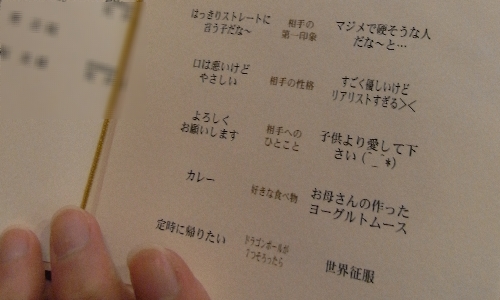 はっきりストレートに
言う子だな〜
相手の
第一印象
マジメで硬そうな人
だな〜と…
口は悪いけど
やさしい
相手の性格
すごく優しいけど
リアリストすぎる＞＜
よろしく
お願いします
相手への
ひとこと
子供より愛して下
さい (^_^*)
カレー
好きな食べ物
お母さんの作った
ヨーグルトムース
定時に帰りたい
ドラゴンボールが
7つそろったら
世界征服